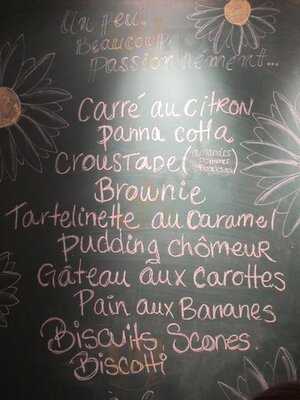 Un peu..
Beaucoup
Passionnément...
Carré au Citron
panna cotta
Croustade (
Brownie
Tartelinette au Caramel
pudding chômeur
Gâteau aux Carottes
Pain aux Bananes
Biscuits, Scones.
Biscotti